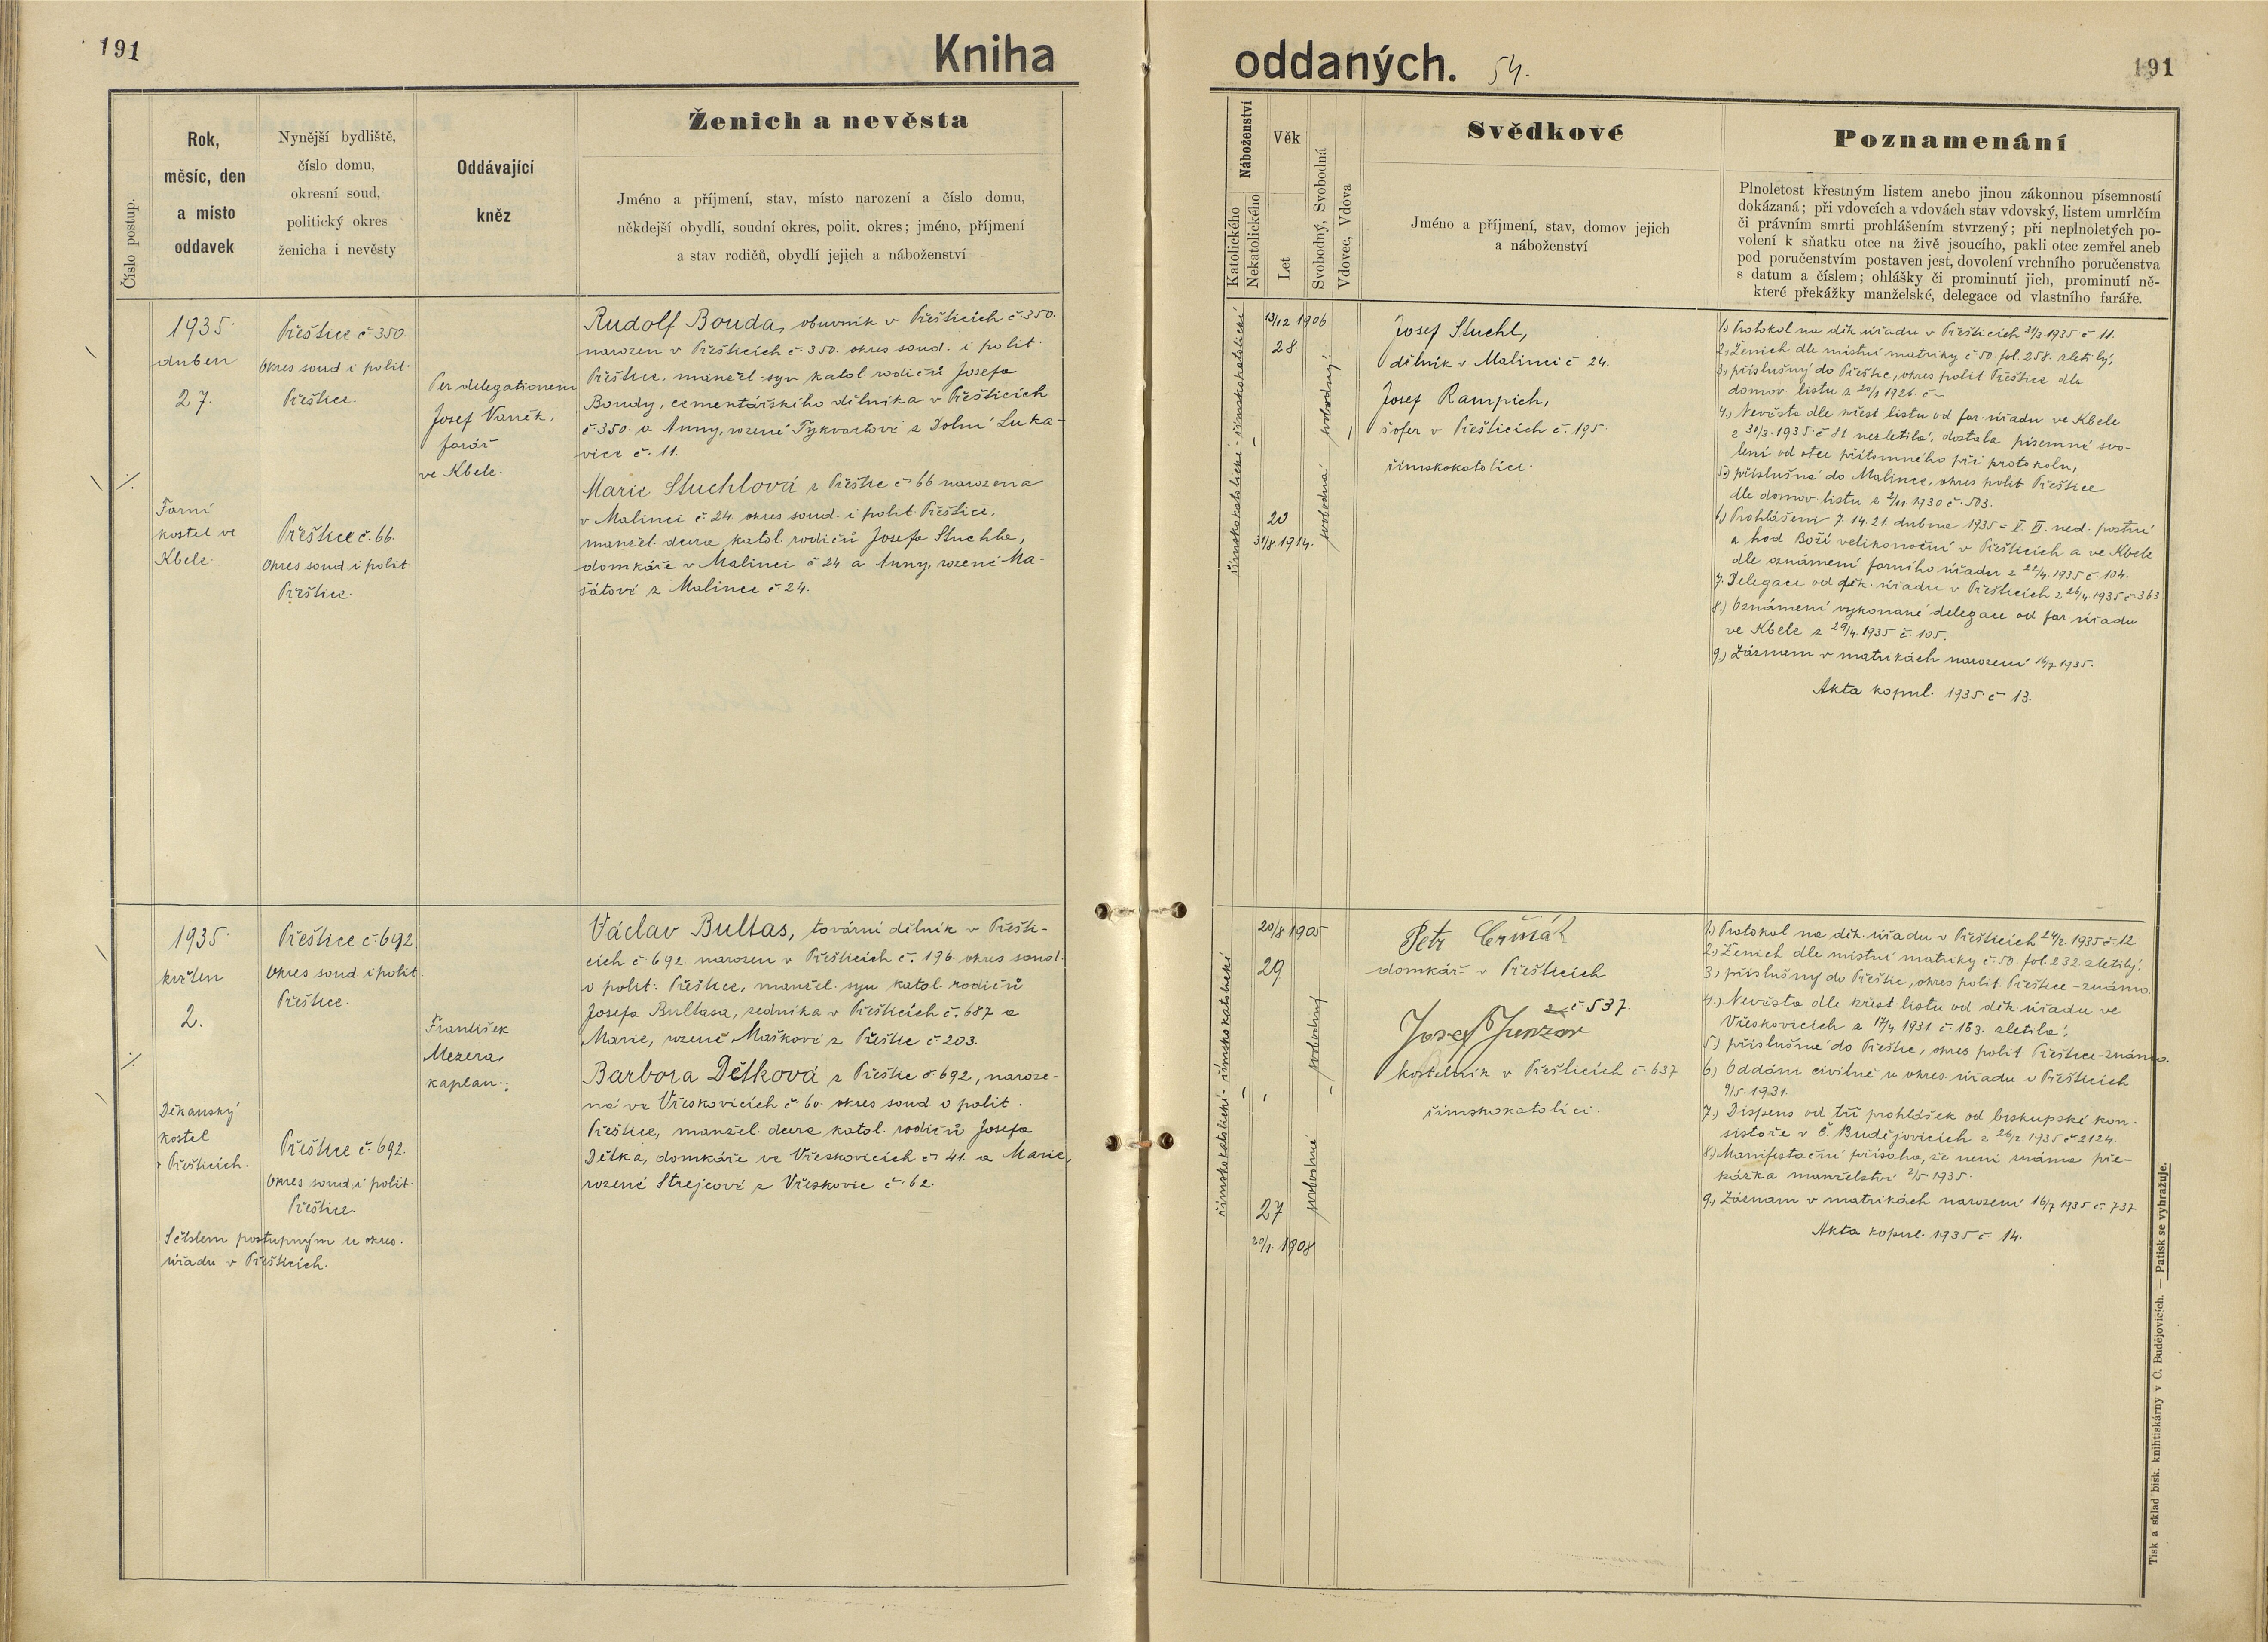 191
Kniha
Číslo postup.
Rok,
měsíc, den
a místo
oddavek
Nynější bydliště,
číslo domu,
okresní soud,
politický okres
ženicha i nevěsty
Oddávající
kněz
Ženich a nevěsta
Jméno a příjmení, stav, místo narození a číslo domu,
někdejší obydlí, soudní okres, polit. okres; jméno, příjmení
a stav rodičů, obydlí jejich a náboženství
1935
duben
27.
Farní
kostel ve
Kbele.
Přeštice č 350.
okres soud i polit.
Přeštice.
Přeštice č. 66.
okres soud i polit
Přeštice.
Per delegationem
Josef Vaněk,
farář
ve Kbele.
Rudolf Bouda, obuvník v Přešticích č 350.
narozen v Přešticích č. 350. okres soud. i polit.
Přeštice, manžel. syn katol. rodičů Josefa
Boudy, cementářského dělníka v Přešticích
č 350. a Anny, rozené Tykvartové z Dolní Luka-
vice č. 11.
Marie Stuchlová z Přeštic č 66 narozena
v Malinci č 24 okres soud. i polit. Přeštice,
manžel. dcera katol. rodičů Josefa Stuchla,
domkáře v Malinci č 24. a Anny, rozené Ma-
šátové z Malince č 24.
1935
květen
2.
Děkanský
kostel
v Přešticích.
S číslem postupným u okres.
úřadu v Přešticích.
Přeštice č. 692.
okres soud i polit.
Přeštice.
Přeštice č. 692.
okres soud i polit.
Přeštice.
František
Mezera
kaplan.
Václav Bultas, tovární dělník v Přešti-
cích č 692 narozen v Přešticích č. 196. okres soud.
o polit. Přeštice, manžel. syn katol. rodičů
Josefa Bultasa, zedníka v Přešticích č. 687 a
Marie, rozené Maškové z Přeštic č. 203.
Barbora Dětková z Přeštic č. 692, naroze-
na ve Vřeskovicích č 60. okres soud. o polit.
Přeštice, manžel. dcera katol. rodičů Josefa
Dětka, domkáře ve Vřeskovicích č 41. a Marie,
rozené Strejcové z Vřeskovic č. 62.
oddaných. 54.
191
Náboženství
Katolického
Nekatolického
Věk
Let
Svobodný, Svobodná
Vdovec, Vdova
Svědkové
Jméno a příjmení, stav, domov jejich
a náboženství
Poznamenání
Plnoletost křestným listem anebo jinou zákonnou písemností
dokázaná; při vdovcích a vdovách stav vdovský, listem umrlčím
či právním smrti prohlášením stvrzený; při neplnoletých po-
volení k sňatku otce na živě jsoucího, pakli otec zemřel aneb
pod poručenstvím postaven jest, dovolení vrchního poručenstva
s datum a číslem; ohlášky či prominutí jich, prominutí ně-
které překážky manželské, delegace od vlastního faráře.
římskokatolické - římskokatolické
13/12 1906
28
20
31/8. 1914.
svobodný
svobodná
Josef Stuchl,
dělník v Malinci č 24.
Josef Rampich,
šofer v Přešticích č. 195.
římskokatolíci.
1.) Protokol na děk. úřadu v Přešticích 31/3 1935 č 11.
2.) Ženich dle místní matriky č 50. fol. 258. zletilý,
3.) příslušný do Přeštic, okres polit Přeštice dle
domov. listu z 20/1 1926. č –
4.) Nevěsta dle křest listu od far. úřadu ve Kbele
z 30/3. 1935. č 81 nezletilá, dostala písemné svo-
lení od otce přítomného při protokolu,
5.) příslušná do Malince, okres polit Přeštice
dle domov. listu z 2/11 1930 č. 503.
6.) Prohlášení 7. 14. 21. dubna 1935 = V. VI. ned. postní
a hod Boží velikonoční v Přešticích a ve Kbele
dle oznámení farního úřadu z 22/4. 1935 č 104.
7. Delegace od děk. úřadu v Přešticích z 26/4 1935 č 363
8.) Oznámení vykonané delegace od far úřadu
ve Kbele z 29/4. 1935 č. 105.
9.) Záznam v matrikách narození 16/7. 1935.
Akta kopul. 1935 č 13.
římskokatolické - římskokatolické
20/8 1905
29
27
20/1. 1908
svobodný
svobodná
Petr Čermák
domkář v Přešticích
č 537.
Josef Junzor
kostelník v Přešticích č 637
římskokatolíci.
1.) Protokol na děk. úřadu v Přešticích 24/2. 1935 č 12
2.) Ženich dle místní matriky č 50. fol. 232. zletilý.
3.) příslušný do Přeštic, okres polit. Přeštice - známo.
4.) Nevěsta dle křest. listu od děk. úřadu ve
Vřeskovicích z 17/4 1931 č. 163. zletilá.
5.) příslušná do Přeštic, okres polit. Přeštice - známo.
6.) Oddáni civilně u okres. úřadu v Přešticích
9/5. 1931.
7.) Dispens od tří prohlášek od biskupské kon-
sistoře v Č. Budějovicích z 26/2 1935 č 2124.
8.) Manifestační přísaha, že není známa pře-
kážka manželství 2/5 1935.
9.) Záznam v matrikách narození 16/7 1935 č. 737
Akta kopul. 1935 č 14.
Tisk a sklad bisk. knihtiskárny v Č. Budějovicích. — Patisk se vyhražuje.